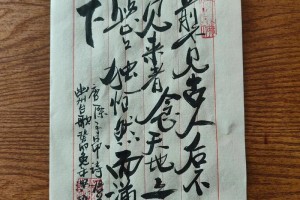 前不见古人后不
见来者念天地之
悠悠独怆然而涕
下
唐陈子昂诗登
幽州台歌